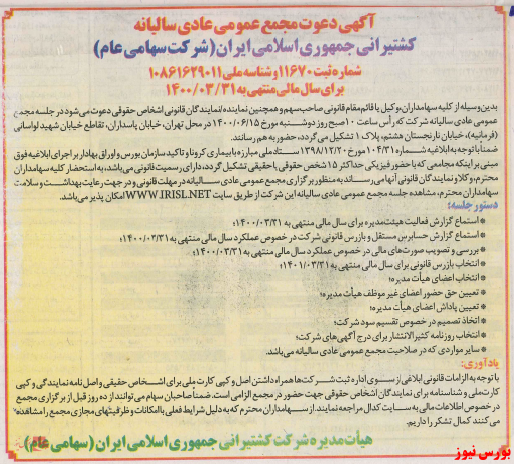 آگهی دعوت مجمع عمومی عادی سالیانه
کشتیرانی جمهوری اسلامی ایران (شرکت سهامی عام)
شماره ثبت ۱۱۶۷۰ و شناسه ملی ۱۰۸۶۱۶۲۹۰۱۱
برای سال مالی منتهی به ۱۴۰۰/۰۳/۳۱
بدین وسیله از کلیه سهامداران، وکیل یا قائم مقام قانونی صاحب سهم و همچنین نماینده/نمایندگان قانونی اشخاص حقوقی دعوت می‌شود در جلسه مجمع
عمومی عادی سالیانه شرکت که رأس ساعت ۱۰ صبح روز دوشنبه مورخ ۱۴۰۰/۰۶/۱۵ در محل تهران، خیابان پاسداران، تقاطع خیابان شهید لواسانی
(فرمانیه)، خیابان نارنجستان هشتم، پلاک ۱ تشکیل می گردد، حضور به هم رسانند.
ضمنا با توجه به ابلاغیه شماره ۱۰۴/۳۱ مورخ ۱۳۹۸/۱۲/۲۰ ستاد ملی مبارزه با بیماری کرونا و تاکید سازمان بورس و اوراق بهادار بر اجرای ابلاغیه فوق
مبنی بر اینکه مجامعی که با حضور فیزیکی حداکثر ۱۵ شخص حقوقی یا حقیقی تشکیل گردد، دارای رسمیت قانونی می‌باشد، به استحضار کلیه سهامداران
محترم، وکلا و نمایندگان قانونی آنها می رساند به منظور برگزاری مجمع عمومی عادی سالیانه در مهلت قانونی و در جهت رعایت بهداشت و سلامت
سهامداران محترم، مشاهده جلسه مجمع عمومی عادی سالیانه این شرکت از طریق سایت WWW.IRISL.NET امکان پذیر می باشد.
دستور جلسه:
* استماع گزارش فعالیت هیئت مدیره برای سال مالی منتهی به ۱۴۰۰/۰۳/۳۱؛
* استماع گزارش حسابرس مستقل و بازرس قانونی شرکت در خصوص عملکرد سال مالی منتهی به ۱۴۰۰/۰۳/۳۱؛
* بررسی و تصویب صورت‌های مالی در خصوص عملکرد سال مالی منتهی به ۱۴۰۰/۰۳/۳۱؛
* انتخاب بازرس قانونی برای سال مالی منتهی به ۱۴۰۱/۰۳/۳۱؛
* انتخاب اعضای هیأت مدیره؛
* تعیین حق حضور اعضای غیر موظف هیأت مدیره؛
* تعیین پاداش اعضای هیأت مدیره؛
* اتخاذ تصمیم در خصوص تقسیم سود شرکت؛
* انتخاب روزنامه کثیرالانتشار برای درج آگهی‌های شرکت؛
* سایر مواردی که در صلاحیت مجمع عمومی عادی سالیانه می باشد.
یادآوری:
با توجه به الزامات قانونی ابلاغی از سوی اداره ثبت شرکت ها همراه داشتن اصل و کپی کارت ملی برای اشخاص حقیقی و اصل نامه نمایندگی و کپی
کارت ملی و شناسنامه برای نمایندگان اشخاص حقوقی جهت حضور در مجمع الزامی است. ضمنا صاحبان سهام می توانند از ده روز قبل از برگزاری مجمع
در خصوص اطلاعات مالی به سایت کدال مراجعه نمایند. از سهامداران محترم که به دلیل شرایط فعلی با امکانات و ظرفیتهای مجازی مجمع را مشاهده
می کنند کمال تشکر را داریم.
هیأت مدیره شرکت کشتیرانی جمهوری اسلامی ایران (سهامی عام)
بورس نیوز